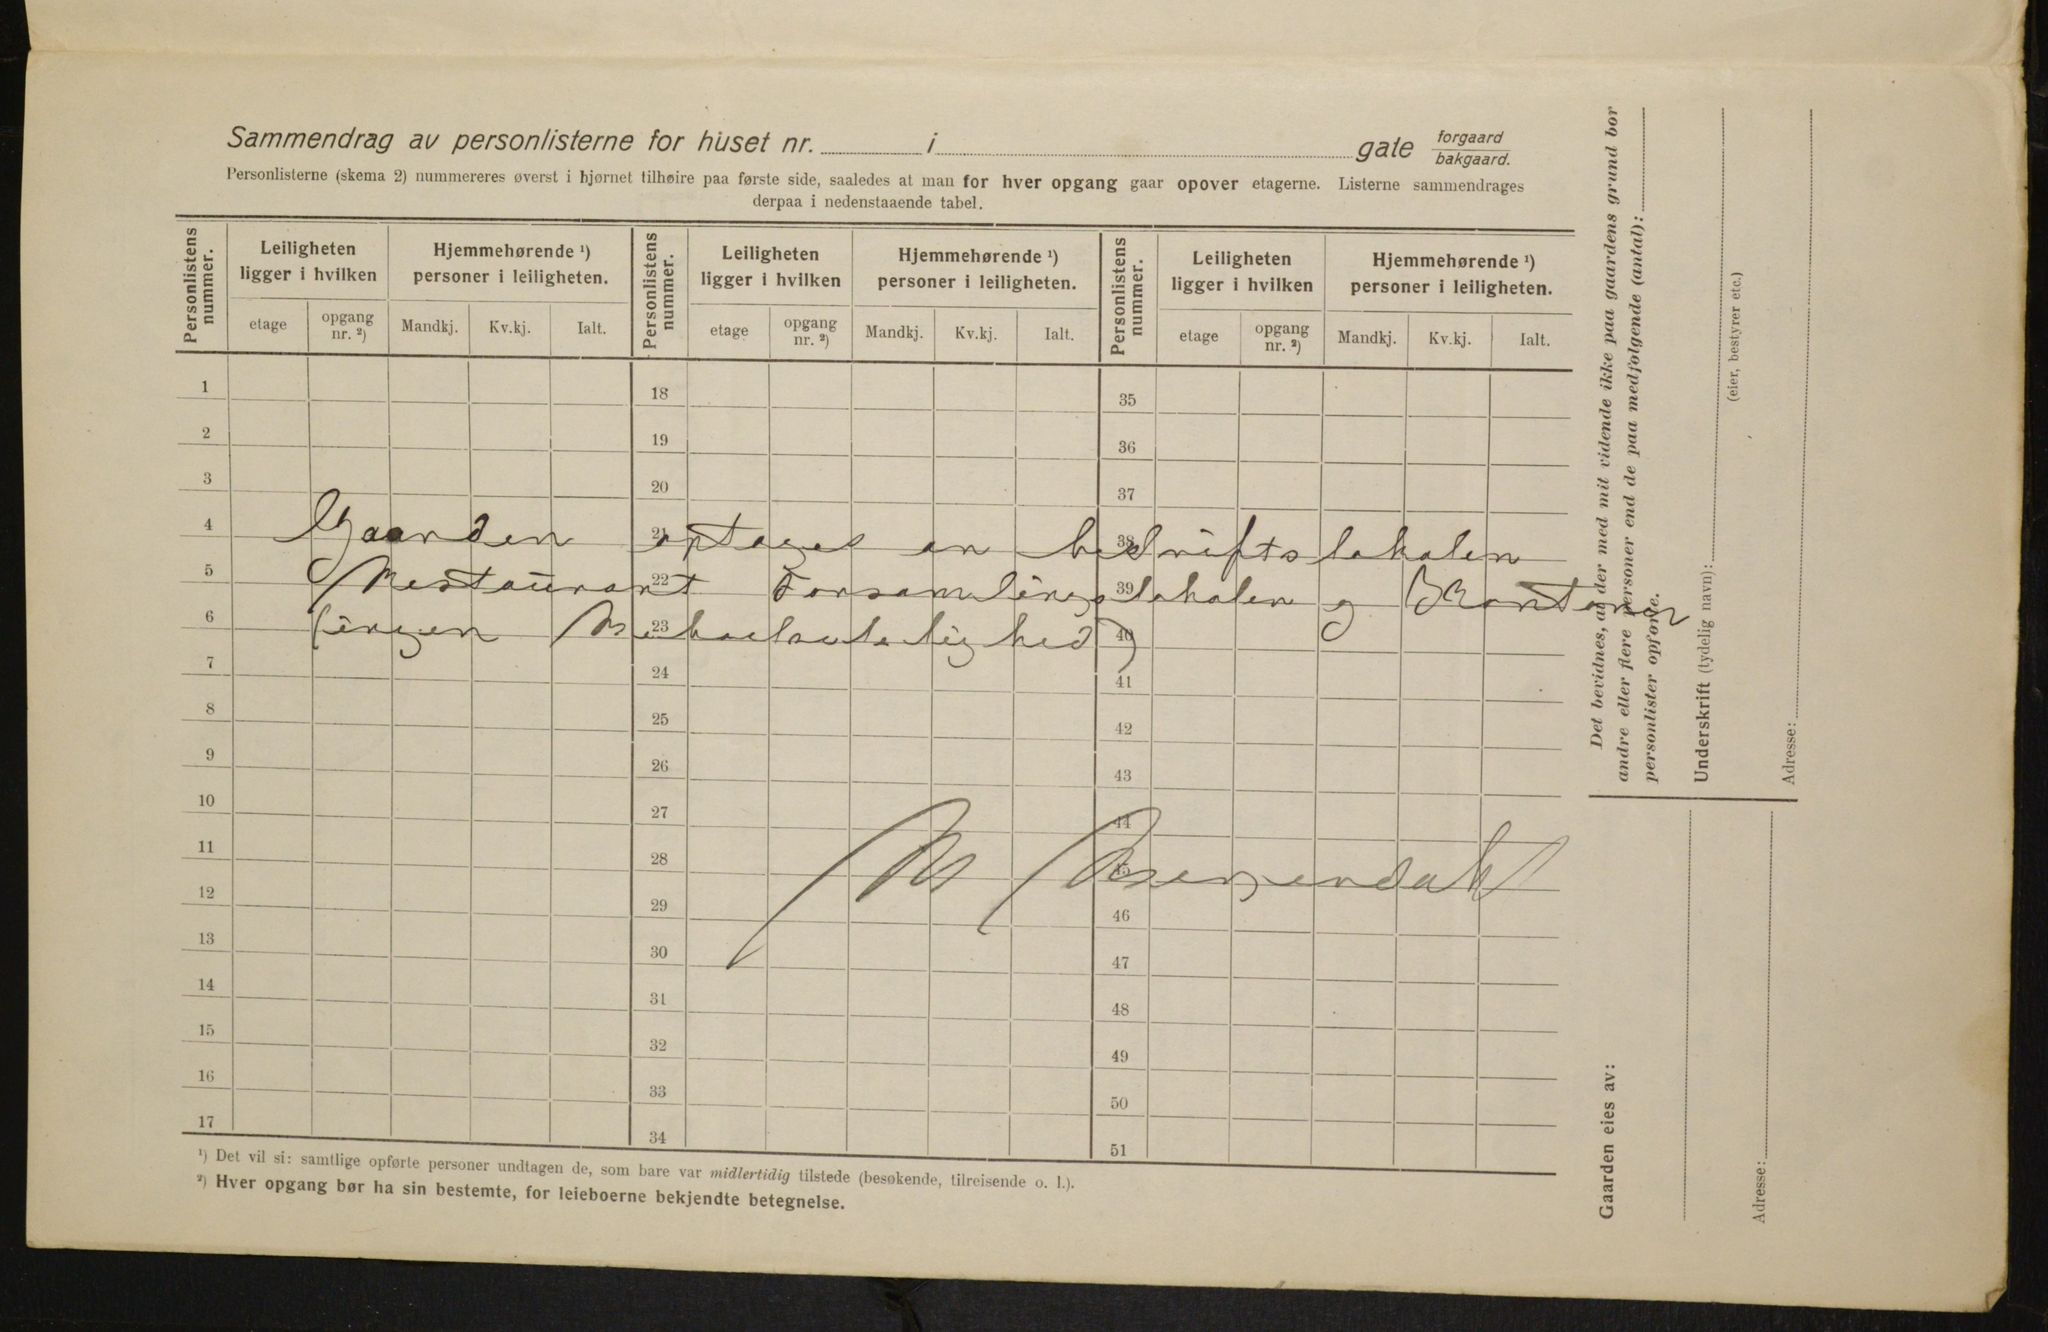 Sammendrag av personlisterne for huset nr. i gate forgaard
bakgaard.
Personlisterne (skema 2) nummereres øverst i hjørnet tilhøire paa første side, saaledes at man for hver opgang gaar opover etagerne. Listerne sammendrages
derpaa i nedenstaaende tabel.
Personlistens nummer. Leiligheten ligger i hvilken Hjemmehørende ¹) personer i leiligheten. Personlistens nummer. Leiligheten ligger i hvilken Hjemmehørende ¹) personer i leiligheten. Personlistens nummer. Leiligheten ligger i hvilken Hjemmehørende ¹) personer i leiligheten.
etage opgang nr. ²) Mandkj. Kv.kj. Ialt. etage opgang nr. ²) Mandkj. Kv.kj. Ialt. etage opgang nr. ²) Mandkj. Kv.kj. Ialt.
1 18 35
2 19 36
3 20 37
4 21 38
Gaarden optages bedriftslokaler
5 22 39
Restaurant Forsamlingslokaler og Kontorer
6 23 40
(ingen
7 24 41
8 25 42
9 26 43
10 27 44
11 28 45
12 29 46
13 30 47
14 31 48
15 32 49
16 33 50
17 34 51
¹) Det vil si: samtlige opførte personer undtagen de, som bare var midlertidig tilstede (besøkende, tilreisende o. l.).
²) Hver opgang bør ha sin bestemte, for leieboerne bekjendte betegnelse.
Det bevidnes, at der med mit vidende ikke paa gaardens grund bor
andre eller flere personer end de paa medfølgende (antal):
personlister opførte.
Underskrift (tydelig navn):
(eier, bestyrer etc.)
Adresse:
Gaarden eies av:
Adresse: